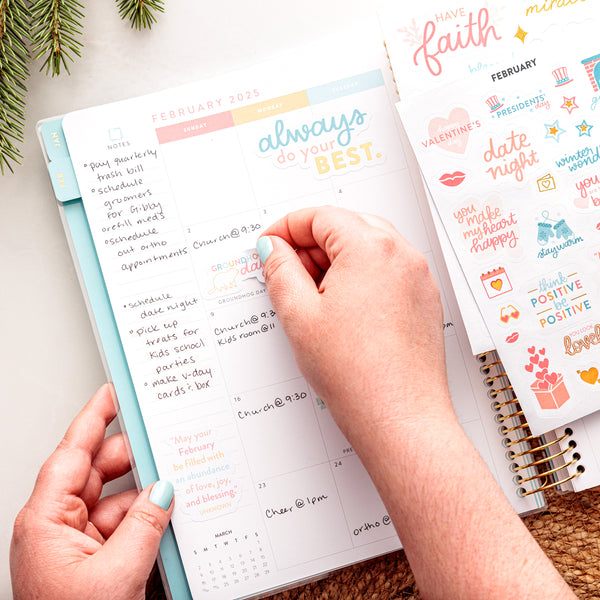 FEBRUARY 2025
NOTES
SUNDAY
MONDAY
TUESDAY
pay quarterly
trash bill
schedule
groomers
for Gibby
refill meds
schedule
out ortho
appointments
schedule
date night
pick up
treats for
Kids school
parties
make v-day
cards & box
May your
February
be filled with
an abundance
of love, joy,
and blessing.
UNKNOWN
MARCH
S M T W T F S
always
do your
BEST.
2
3
4
Church @ 9:30
GROUNDHOG
day
GROUNDHOG DAY
9
Church @ 9:30
Kids room @ 11
16
Church @ 9:30
23
24
Cheer @ 1pm
ortho @
HAVE
faith
miracle
FEBRUARY
VALENTINE'S
PRESIDENTS'
DAY
date
night
winter
wonder
you make
my heart
happy
stay warm
think
POSITIVE
be
POSITIVE
YOU LOOK
lovely